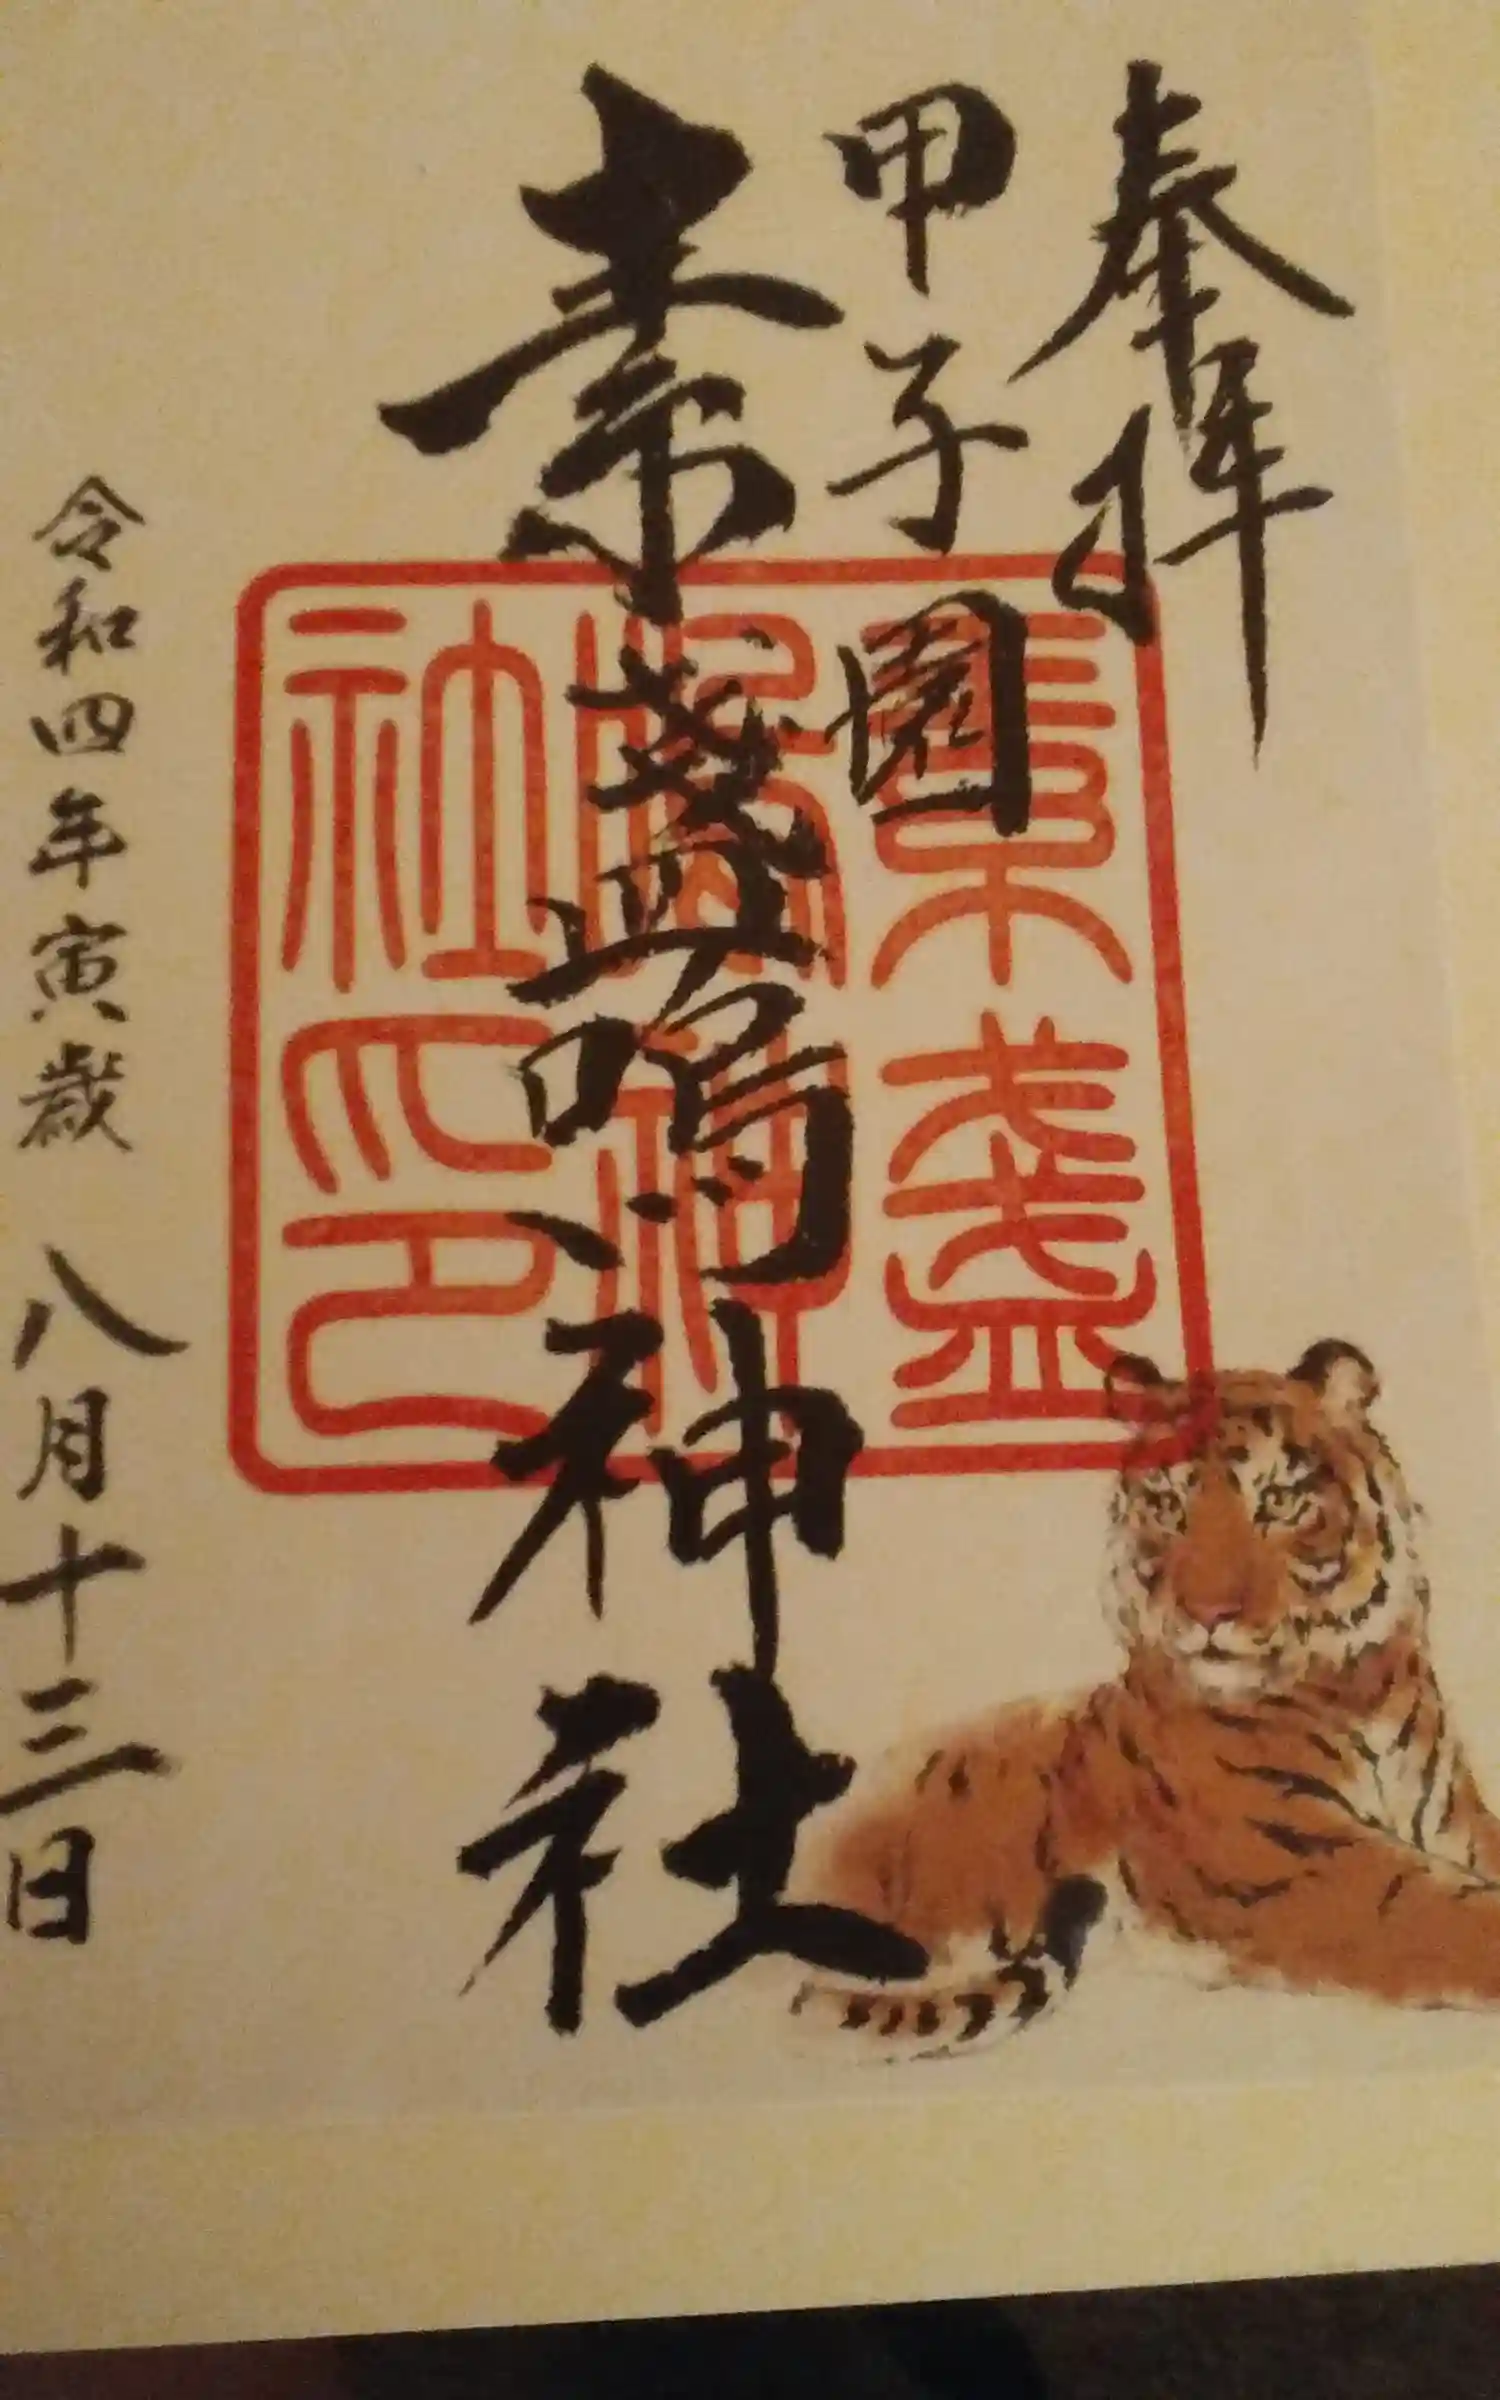 奉拝
甲子園
素盞嗚神社
素盞
嗚神
社印
令和四年寅歳 八月十三日